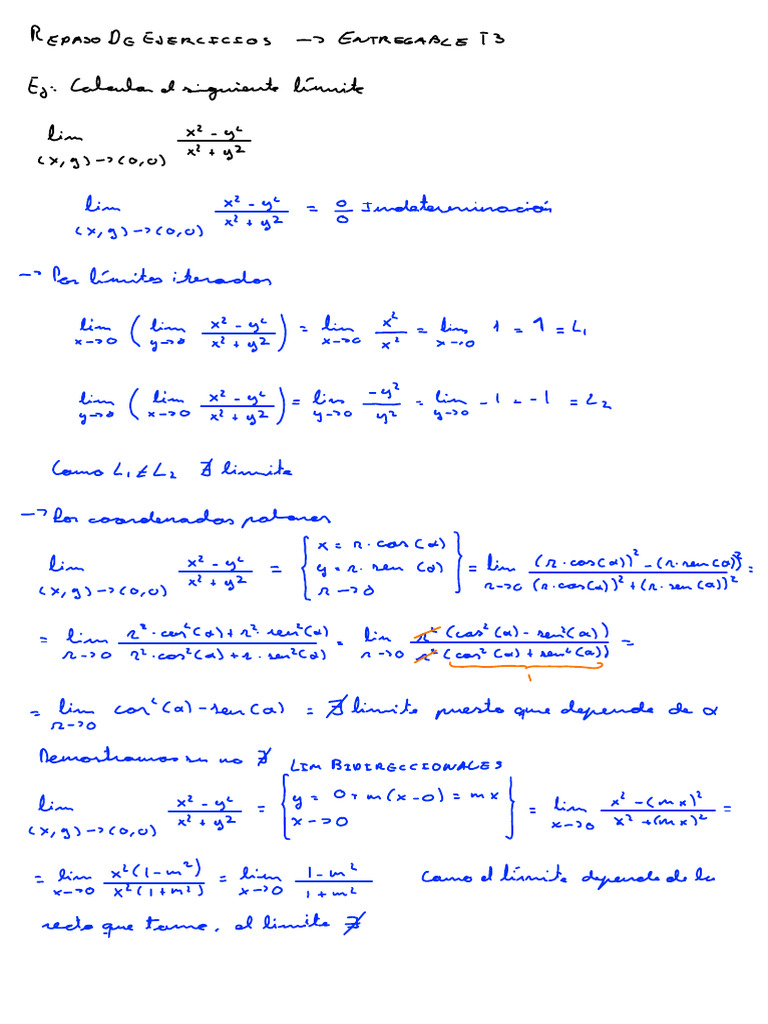 REPASO DE EJERCICIOS → ENTREGABLE T3
Ej: Calcular el siguiente límite
lim (x,y)→(0,0) (x² - y²)/(x² + y²)
lim (x,y)→(0,0) (x² - y²)/(x² + y²) = 0/0 Indeterminación
→ Por límites iterados
lim x→0 ( lim y→0 (x² - y²)/(x² + y²) ) = lim x→0 x²/x² = lim x→0 1 = 1 = L₁
lim y→0 ( lim x→0 (x² - y²)/(x² + y²) ) = lim y→0 -y²/y² = lim y→0 -1 = -1 = L₂
Como L₁ ≠ L₂ ∄ limite
→ Por coordenadas polares
lim (x,y)→(0,0) (x² - y²)/(x² + y²) = { x = r·cos(α) y = r·sen(α) r→0 } = lim r→0 ((r·cos(α))² - (r·sen(α))²)/((r·cos(α))² + (r·sen(α))²) =
= lim r→0 (r²·cos²(α) + r²·sen²(α))/(r²·cos²(α) + r·sen²(α)) = lim r→0 (r²(cos²(α) - sen²(α)))/(r²(cos²(α) + sen²(α))) =
1
= lim r→0 cos²(α) - sen(α) = ∄ limite puesto que depende de α
Demostramos su no ∄ LIM BIDIRECCIONALES
lim (x,y)→(0,0) (x² - y²)/(x² + y²) = { y = 0 + m(x-0) = mx x→0 } = lim x→0 (x² - (mx)²)/(x² + (mx)²) =
= lim x→0 (x²(1-m²))/(x²(1+m²)) = lim x→0 (1-m²)/(1+m²) Como el límite depende de la
recta que tome, el limite ∄